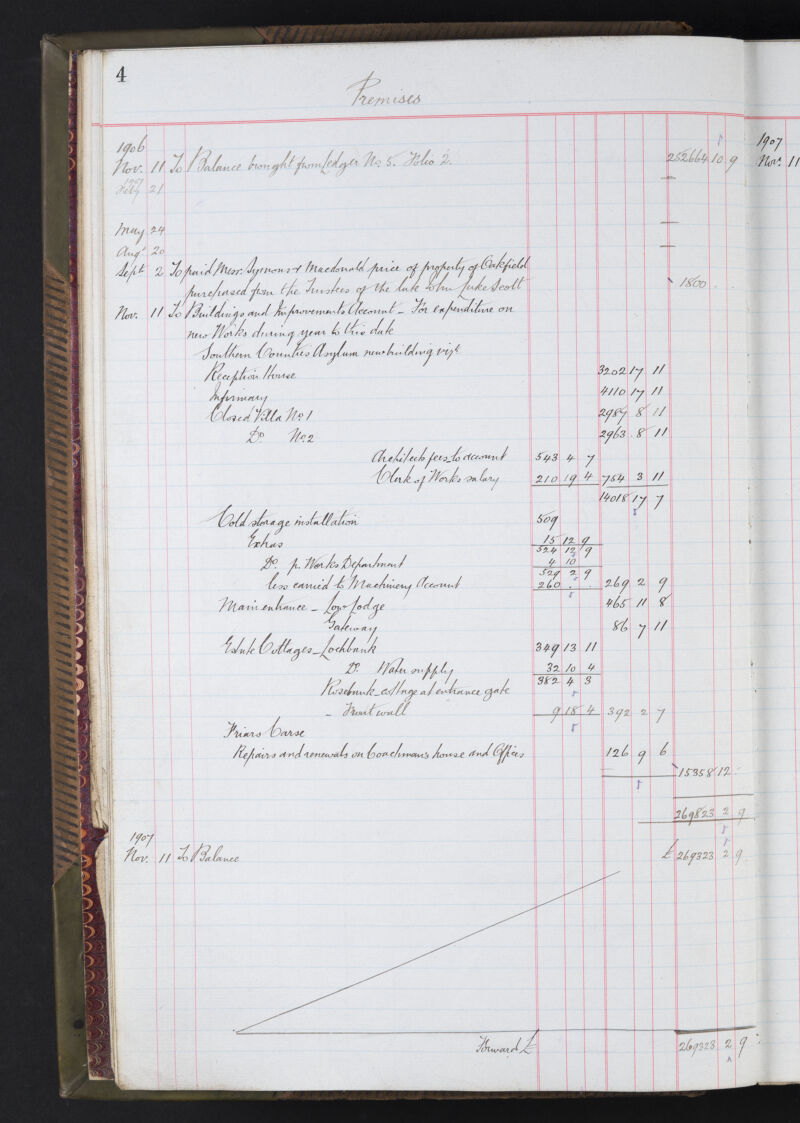 4
Premises
1906
Nov. 11 To Balance brought from Ledger No 5. Folio 2. 252664 10 9
1907
Feby 21
May 24
Augt 20
Sept 2 To paid Messrs Symons & Macdonald price of property of Oakfield
purchased from the Trustees of the late John Luke Scott 1800
Nov. 11 To Buildings and Improvements Account - For expenditure on
new Works during year to this date
Southern Counties Asylum new building vizt
Reception House 3202 17 11
Infirmary 4110 17 11
Closed Villa No 1 2987 8 11
Do No 2 2963 8 11
Architects fees to account 543 4 7
Clerk of Works salary 210 19 4 754 3 11
14018 17 7
Cold storage installation 509
Extras 15 12 9
524 12 9
Do p. Works Department 4 10
529 2 9
less carried to Machinery Account 260 . . 269 2 9
Main entrance - Low Lodge 465 11 8
Gateway 86 7 11
Estate Cottages - Lochbank 349 13 11
Do Water supply 32 10 4
382 4 3
Rosebank cottage at entrance gate
- Front wall 9 18 4 392 2 7
Friars Carse
Repairs and renewals on Coachman's house and Offices 126 9 6
15358 12
269823 2 9
1907
Nov. 11 To Balance £ 269323 2 9
Forward £ 269323 2 9
1907
Novr. 11